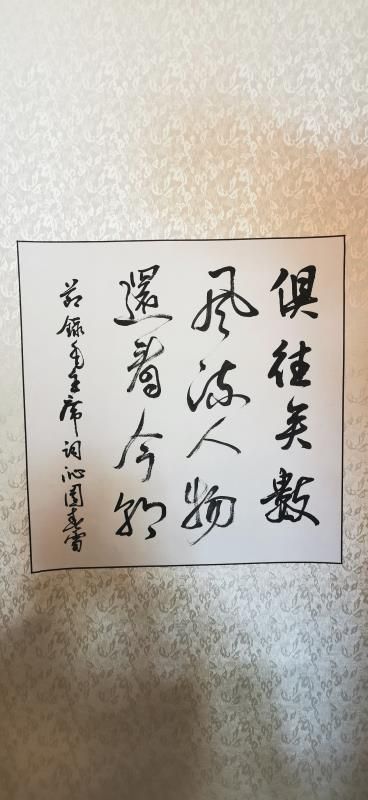 俱往矣數
風流人物
還看今朝
節錄毛主席词沁園春雪